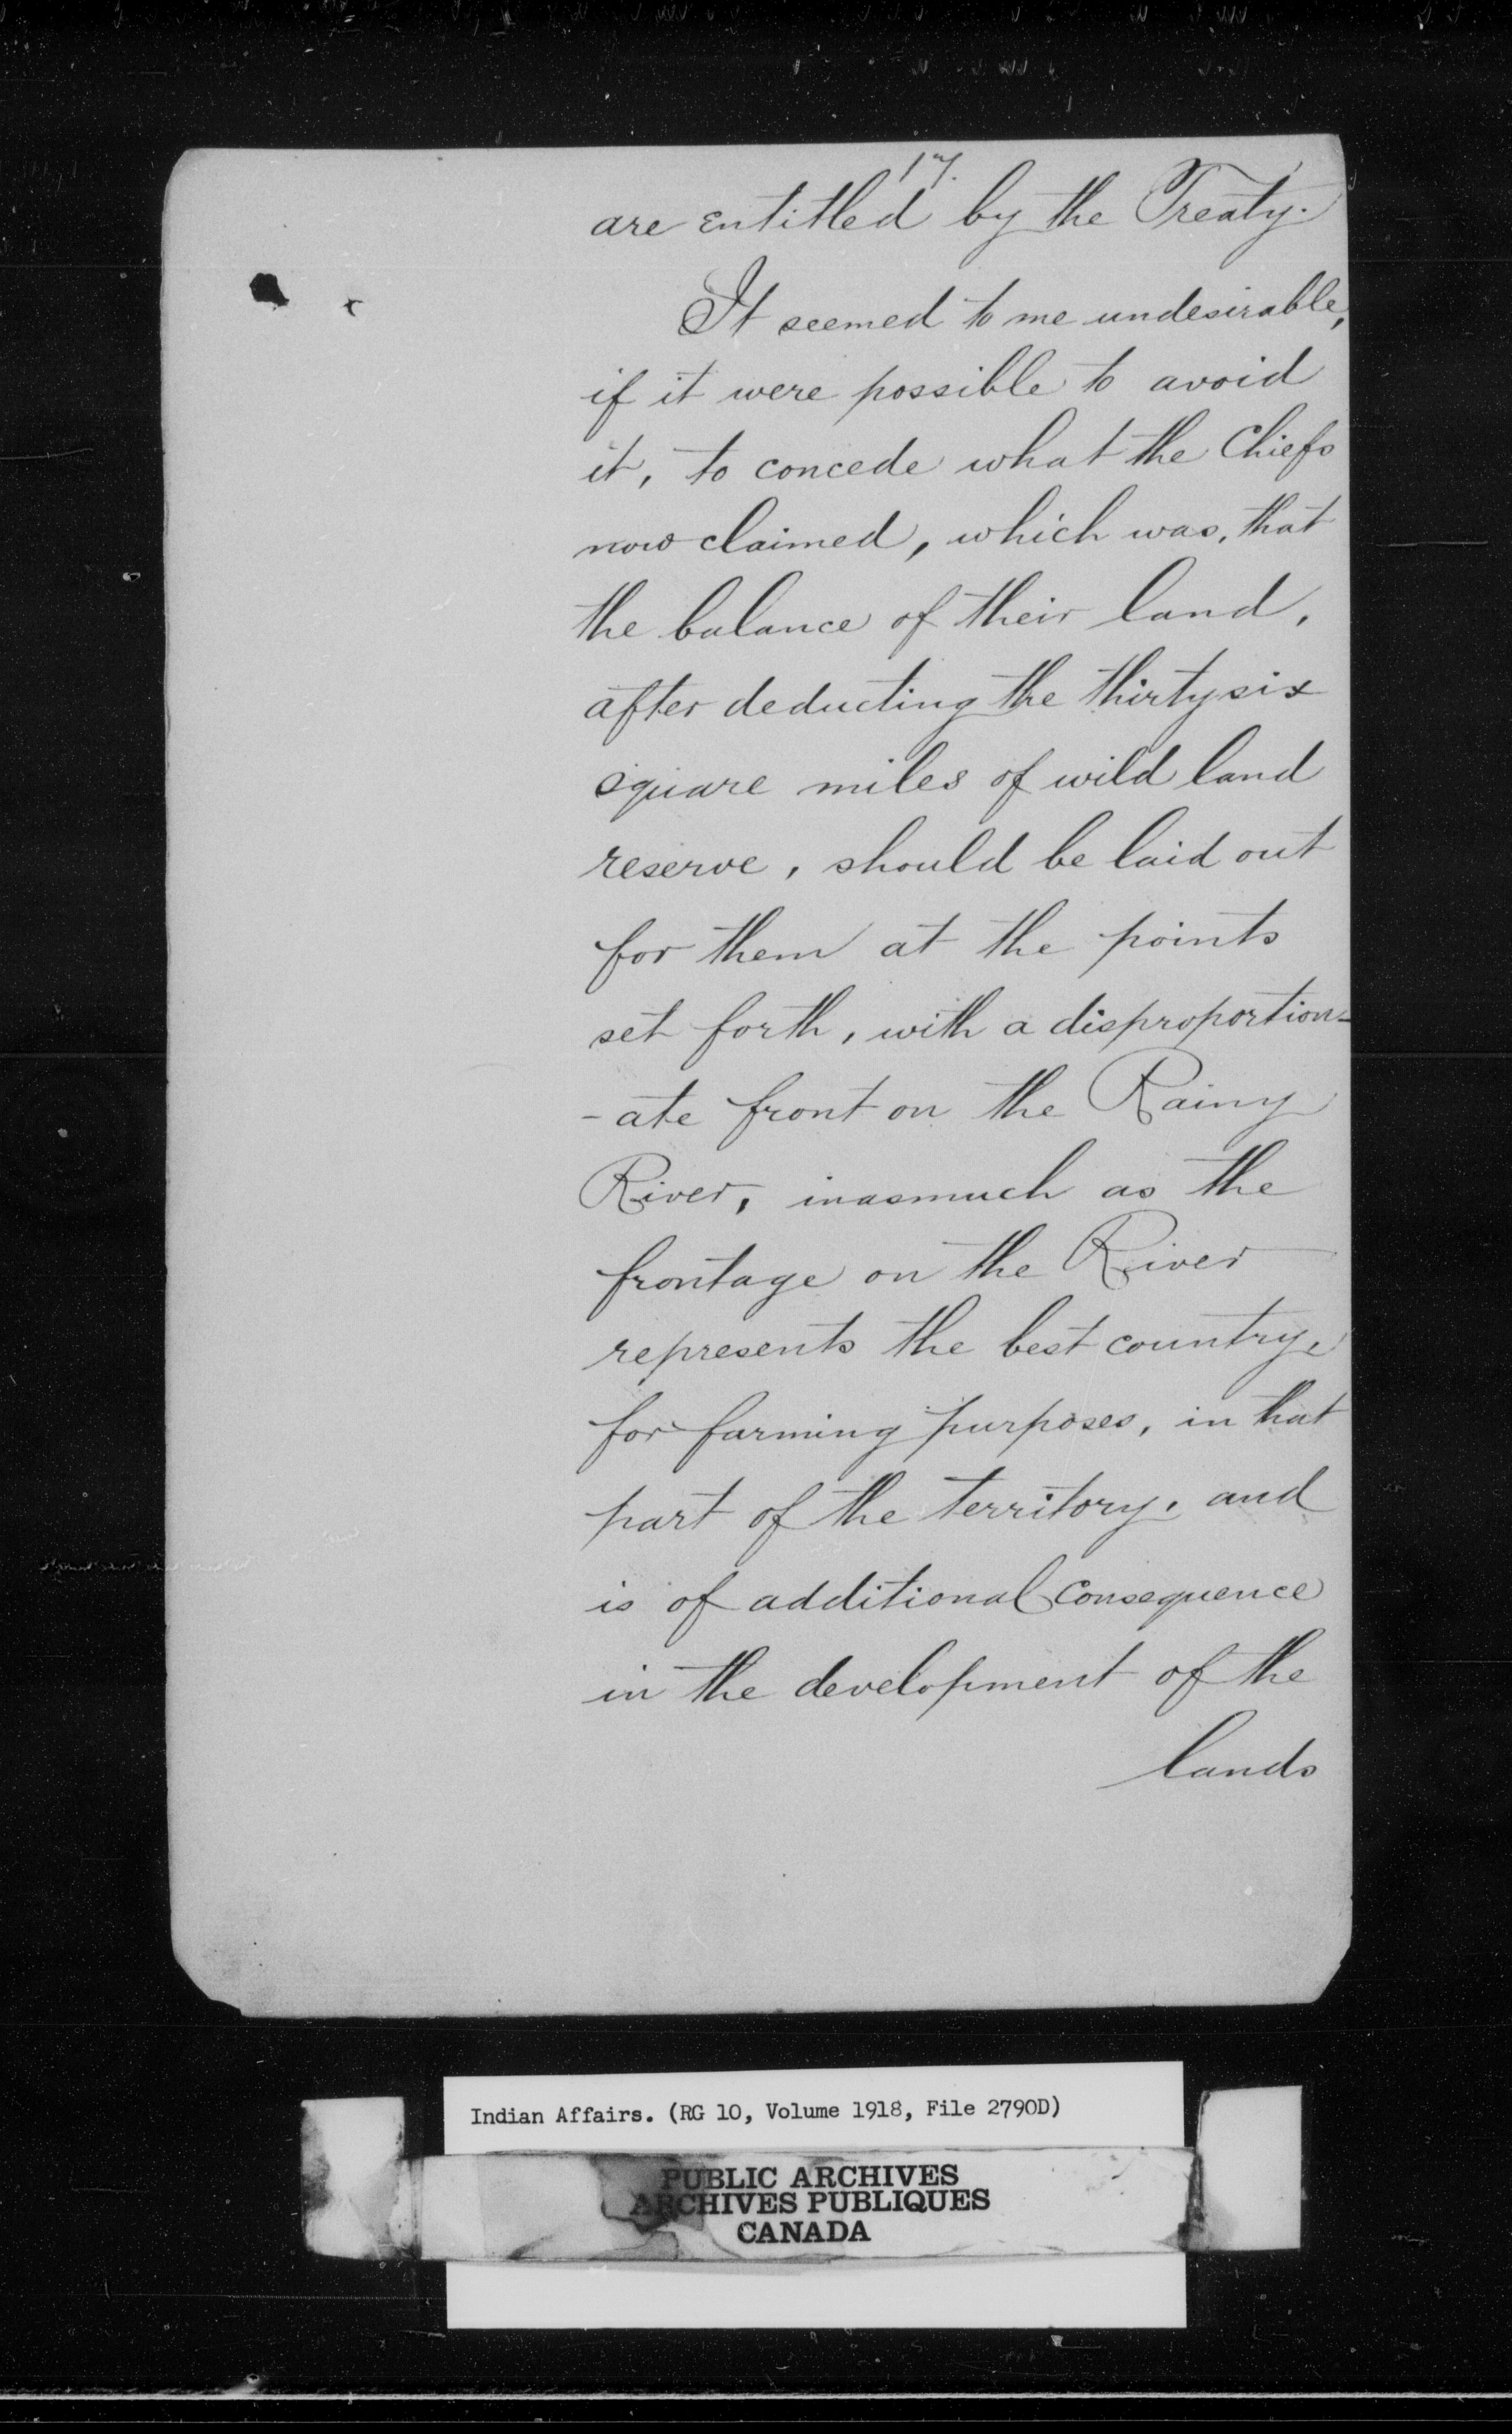 17.
are entitled by the Treaty.
It seemed to me undesirable,
if it were possible to avoid
it, to concede what the Chiefs
now claimed, which was, that
the balance of their land,
after deducting the thirty six
square miles of wild land
reserve, should be laid out
for them at the points
set forth, with a disproportion-
-ate front on the Rainy
River, inasmuch as the
frontage on the River
represents the best country,
for farming purposes, in that
part of the territory, and
is of additional consequence
in the development of the
lands
Indian Affairs. (RG 10, Volume 1918, File 2790D)
PUBLIC ARCHIVES
ARCHIVES PUBLIQUES
CANADA